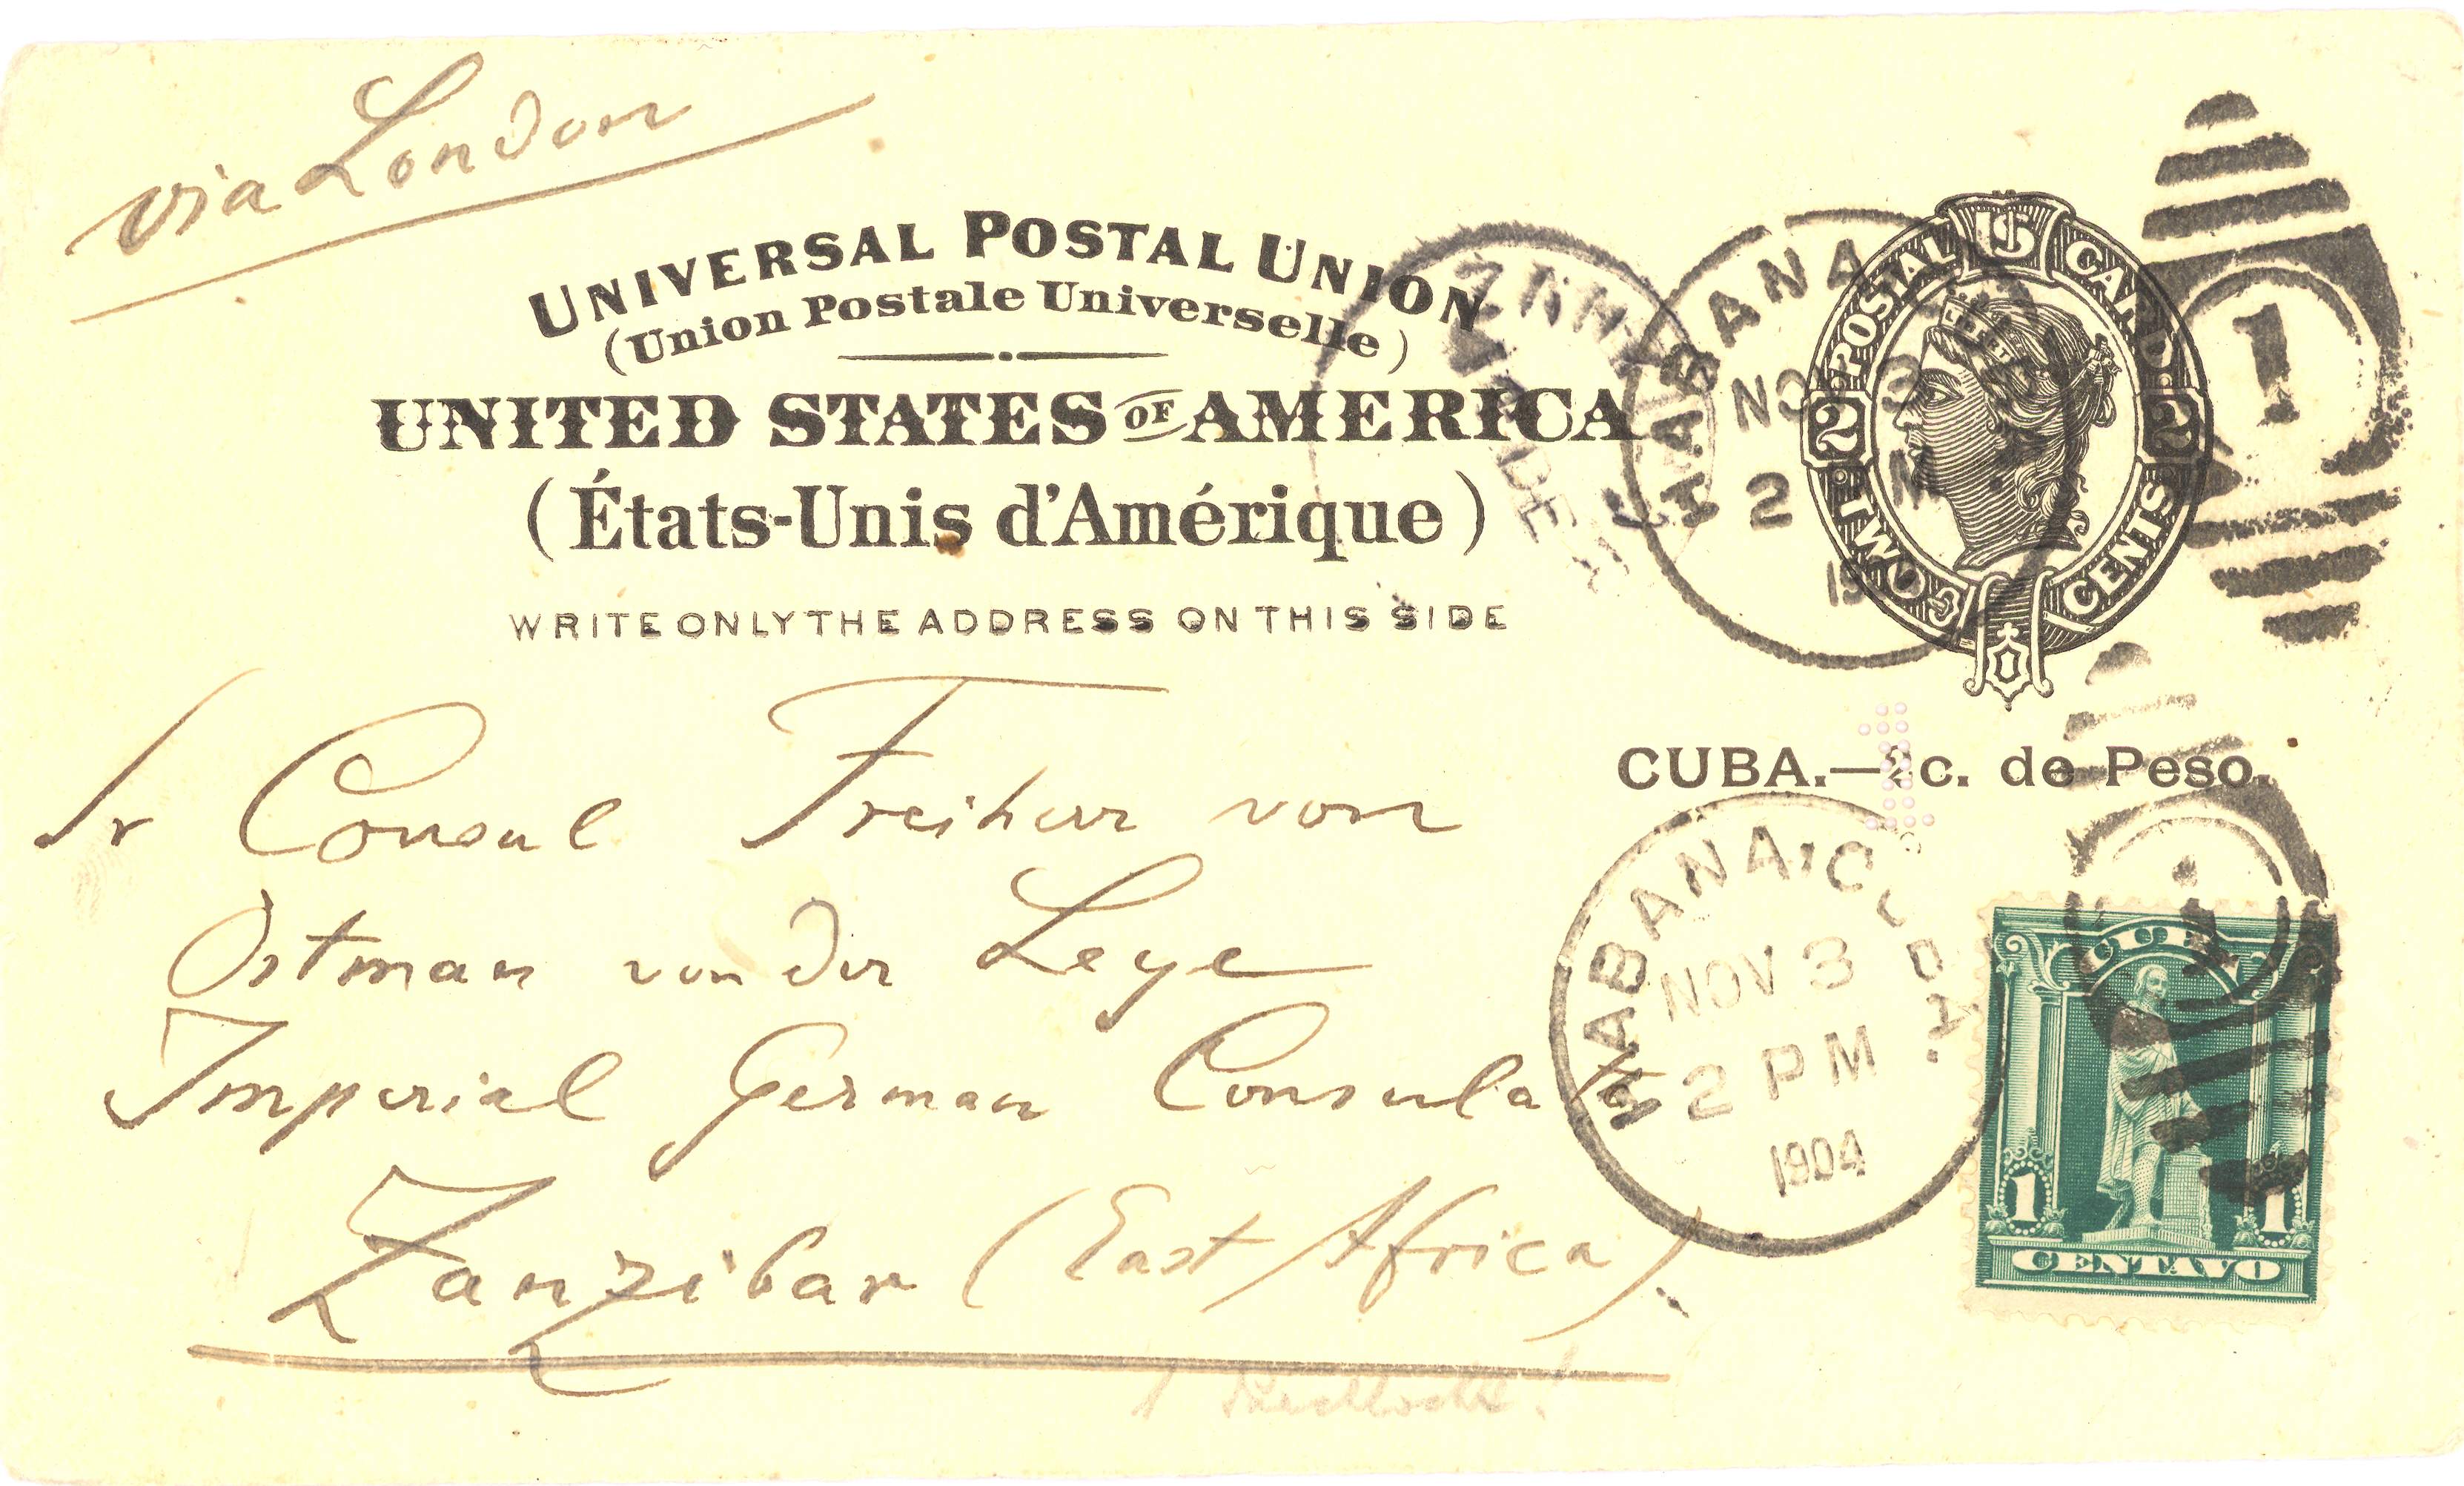 via London
UNIVERSAL POSTAL UNION
(Union Postale Universelle)
UNITED STATES OF AMERICA
(États-Unis d'Amérique)
WRITE ONLY THE ADDRESS ON THIS SIDE
US POSTAL CARD
LIBERTY
2 2
TWO CENTS
HABANA
NO
2 M
19
1
CUBA.—2c. de Peso.
1
Sr Consul Freiherr von
Ostman von der Leye
Imperial German Consulat
Zanzibar (East Africa)
HABANA, CUBA.
NOV 3
2 PM
1904
CUBA
1 1
CENTAVO